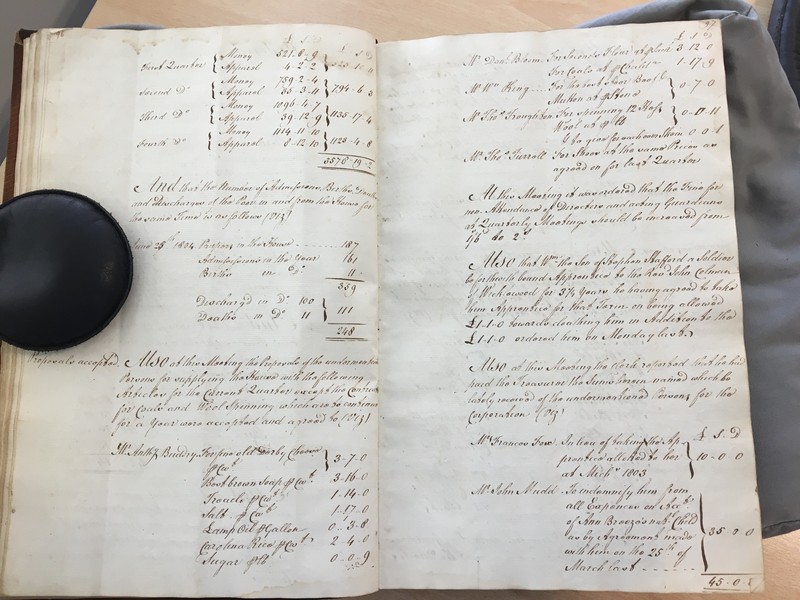 £ S D £ S D
First Quarter { Money 521-8-9
Apparel 4-2-2 } 525-10-11
Second Do { Money 759-2-4
Apparel 35-3-11 } 794-6-3
Third Do { Money 1096-4-7
Apparel 39-12-9 } 1135-17-4
Fourth Do { Money 1114-11-10
Apparel 8-12-10 } 1123-4-8
3578-19-2
And that the Number of Admissions, Births, Deaths
and discharges of the Poor in and from the House for
the same Time is as follows (Viz)
June 25th 1804 Paupers in the House 187
Admissions in the Year 161
Births in Do 11
359
Discharg'd in Do 100
Deaths in Do 11 } 111
248
Proposals accepted. Also at this Meeting the Proposals of the undermention'd
Persons for supplying the House with the following
Articles for the Current Quarter except the Contracts
for Coals and Wool Spinning which are to continue
for a Year were accepted and agreed to (Viz)
Mr Anthy Buddry For fine old Derby Cheese
⅌ Cwt } 3-7-0
Best brown Soap ⅌ Cwt 3-16-0
Treacle ⅌ Cwt 1-14-0
Salt ⅌ Cwt 1-17-0
Lamp Oil ⅌ Gallon 0-3-8
Carolina Rice ⅌ Cwt 2-4-0
Sugar ⅌ lb 0-0-9
97
£ S D
Mr Danl Bloom For Seconds Flour at ⅌ Sack 3-12-0
For Coals at ⅌ Chaldn 1-17-9
Mr Wm King For the best Beef &
Mutton at ⅌ Stone } 0-7-0
Mr Thos Troughton For Spinning 12
Wool at ⅌ lb } 0-0-11
0-0-1
Mr Thos Turrell For Shoes at the same Prices as
agreed on for last Quarter
At this Meeting it was ordered that the Fine for
non Attendance of Directors and acting Guardians
at Quarterly Meetings should be increased from
1/6 to 2s
Also that Wm the Son of Stephen Stafford a Soldier
be forthwith bound Apprentice to the Revd John Colman
of for 3¾ Years he having agreed to take
him Apprentice for that Term on being allowed
£1-1-0 towards cloathing him in Addition to the
£1-1-0 ordered him on Monday last
Also at this Meeting the Clerk reported that he had
paid the Treasurer the Sums herein named which he
lately received of the undermentioned Persons for the
Corporation (Viz)
£ S D
Mr Frances Fow In lieu of taking the Ap-
prentice allotted to her
at Mich's 1803 } 10-0-0
Mr John Mudd To indemnify him from
all Expences on Acct
of Ann Breeze's nat. Child
as by Agreement made
with him on the 25th of
March last } 35-0-0
45-0-0